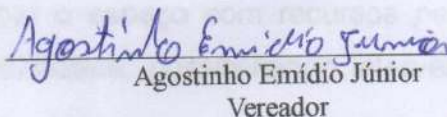 Agostinho Emídio Júnior
Agostinho Emídio Júnior
Vereador